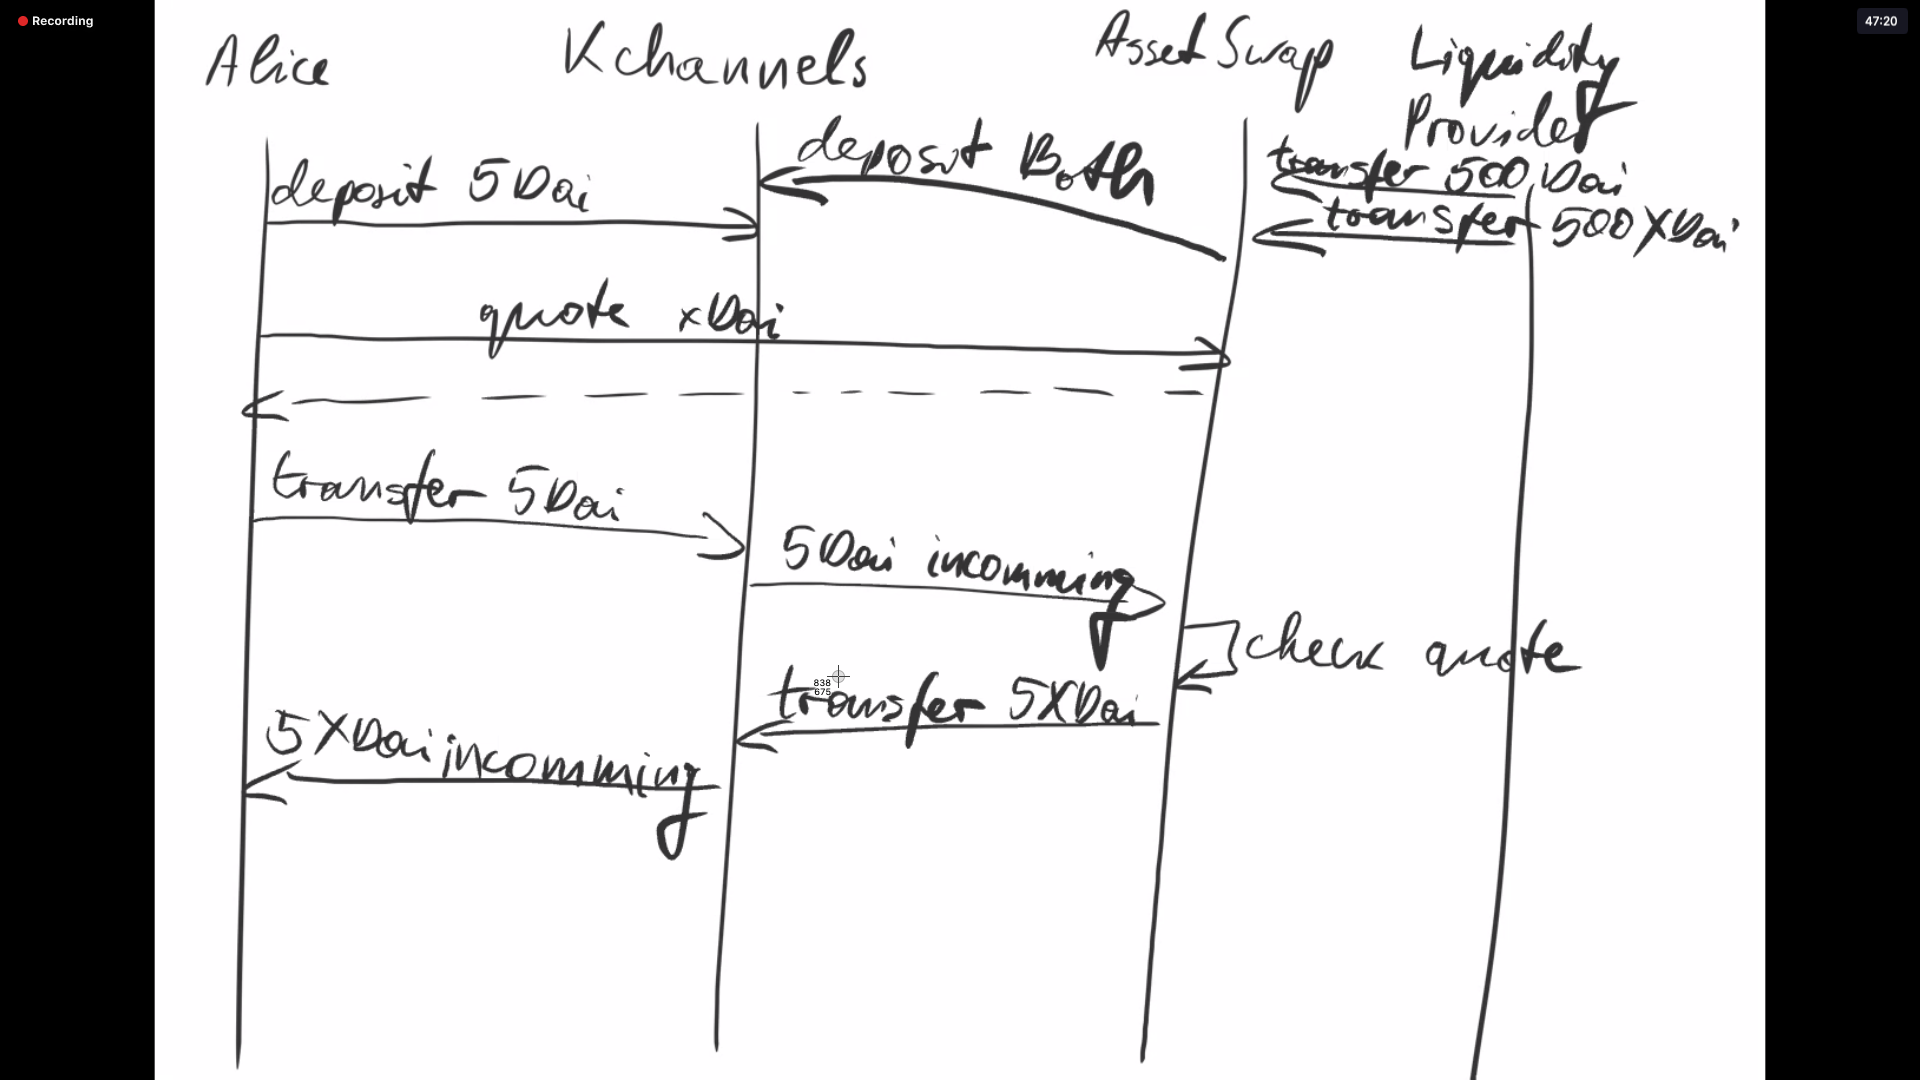 Recording
47:20
Alice
Kchannels
AssetSwap
Liquidity
Provider
deposit 5Dai
deposit Both
transfer 500 Dai
transfer 500XDai
quote xDai
transfer 5Dai
5Dai incomming
check quote
838
675
transfer 5XDai
5XDai incomming